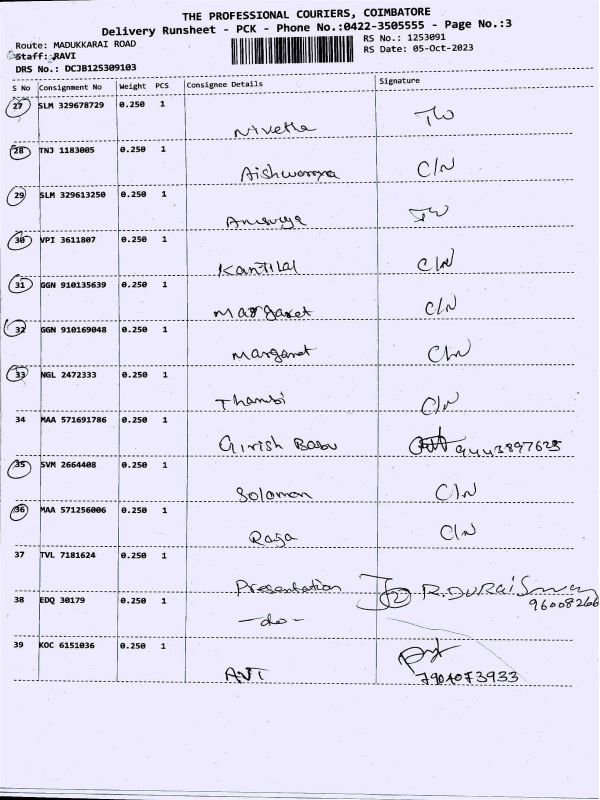 THE PROFESSIONAL COURIERS, COIMBATORE
Delivery Runsheet - PCK - Phone No.:0422-3505555 - Page No.:3
Route: MADUKKARAI ROAD RS No.: 1253091
Staff: RAVI RS Date: 05-Oct-2023
DRS No.: DCJB125309103
S No Consignment No Weight PCS Consignee Details Signature
27 SLM 329678729 0.250 1
Nivetha
28 TNJ 1183005 0.250 1
Aishwarya C/N
29 SLM 329613250 0.250 1
Anusuya
30 VPI 3611807 0.250 1
Kantilal C/N
31 GGN 910135639 0.250 1
Margaret C/N
32 GGN 910169048 0.250 1
Margaret C/N
33 NGL 2472333 0.250 1
Thambi C/N
34 MAA 571691786 0.250 1
Girish Babu 9443897625
35 SVM 2664408 0.250 1
Solomon C/N
36 MAA 571256006 0.250 1
Raja C/N
37 TVL 7181624 0.250 1
Presentation 2 R.DURAISwamy
38 EDQ 30179 0.250 1 96008266
-do-
39 KOC 6151036 0.250 1
7904073933